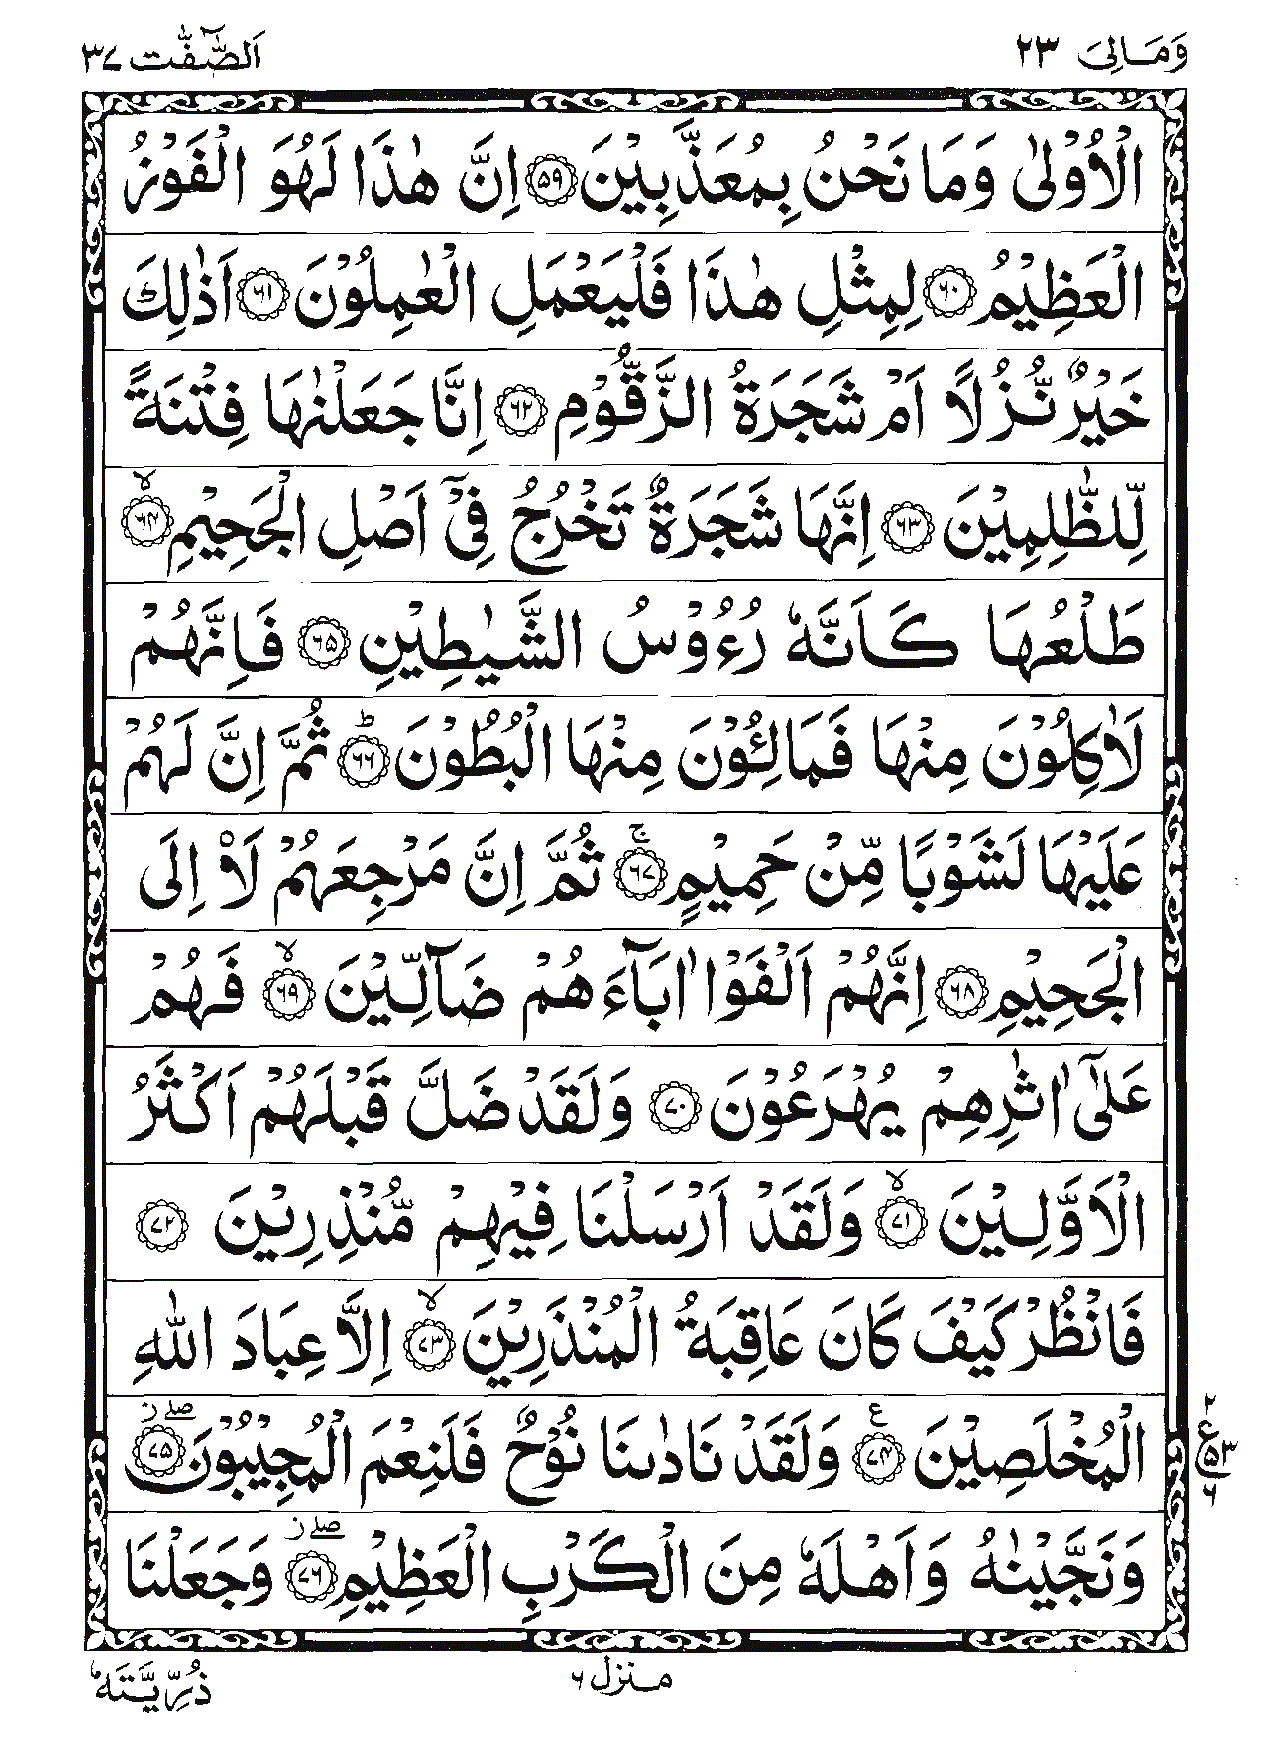 وَمَالِیَ ٢٣ اَلصّٰٓفّٰت ٣٧
الْاُوْلٰى وَمَا نَحْنُ بِمُعَذَّبِيْنَ ﴿٥٩﴾ اِنَّ هٰذَا لَهُوَ الْفَوْزُ
الْعَظِيْمُ ﴿٦٠﴾ لِمِثْلِ هٰذَا فَلْيَعْمَلِ الْعٰمِلُوْنَ ﴿٦١﴾ اَذٰلِكَ
خَيْرٌ نُّزُلًا اَمْ شَجَرَةُ الزَّقُّوْمِ ﴿٦٢﴾ اِنَّا جَعَلْنٰهَا فِتْنَةً
لِّلظّٰلِمِيْنَ ﴿٦٣﴾ اِنَّهَا شَجَرَةٌ تَخْرُجُ فِيْۤ اَصْلِ الْجَحِيْمِ ﴿٦٤﴾ۙ
طَلْعُهَا كَاَنَّهٗ رُءُوْسُ الشَّيٰطِيْنِ ﴿٦٥﴾ فَاِنَّهُمْ
لَاٰكِلُوْنَ مِنْهَا فَمَالِـُٔوْنَ مِنْهَا الْبُطُوْنَ ﴿٦٦﴾ؕ ثُمَّ اِنَّ لَهُمْ
عَلَيْهَا لَشَوْبًا مِّنْ حَمِيْمٍ ﴿٦٧﴾ۚ ثُمَّ اِنَّ مَرْجِعَهُمْ لَا۟اِلَى
الْجَحِيْمِ ﴿٦٨﴾ اِنَّهُمْ اَلْفَوْا اٰبَآءَهُمْ ضَآلِّيْنَ ﴿٦٩﴾ۙ فَهُمْ
عَلٰۤى اٰثٰرِهِمْ يُهْرَعُوْنَ ﴿٧٠﴾ وَلَقَدْ ضَلَّ قَبْلَهُمْ اَكْثَرُ
الْاَوَّلِيْنَ ﴿٧١﴾ۙ وَلَقَدْ اَرْسَلْنَا فِيْهِمْ مُّنْذِرِيْنَ ﴿٧٢﴾
فَانْظُرْ كَيْفَ كَانَ عَاقِبَةُ الْمُنْذَرِيْنَ ﴿٧٣﴾ۙ اِلَّا عِبَادَ اللّٰهِ
الْمُخْلَصِيْنَ ﴿٧٤﴾ ع وَلَقَدْ نَادٰىنَا نُوْحٌ فَلَنِعْمَ الْمُجِيْبُوْنَ ﴿٧٥﴾ صلے ز
٢ ع ٥٣ ٦
وَنَجَّيْنٰهُ وَاَهْلَهٗ مِنَ الْكَرْبِ الْعَظِيْمِ ﴿٧٦﴾ صلے ز وَجَعَلْنَا
منزل ٦
ذُرِّيَّتَهٗ